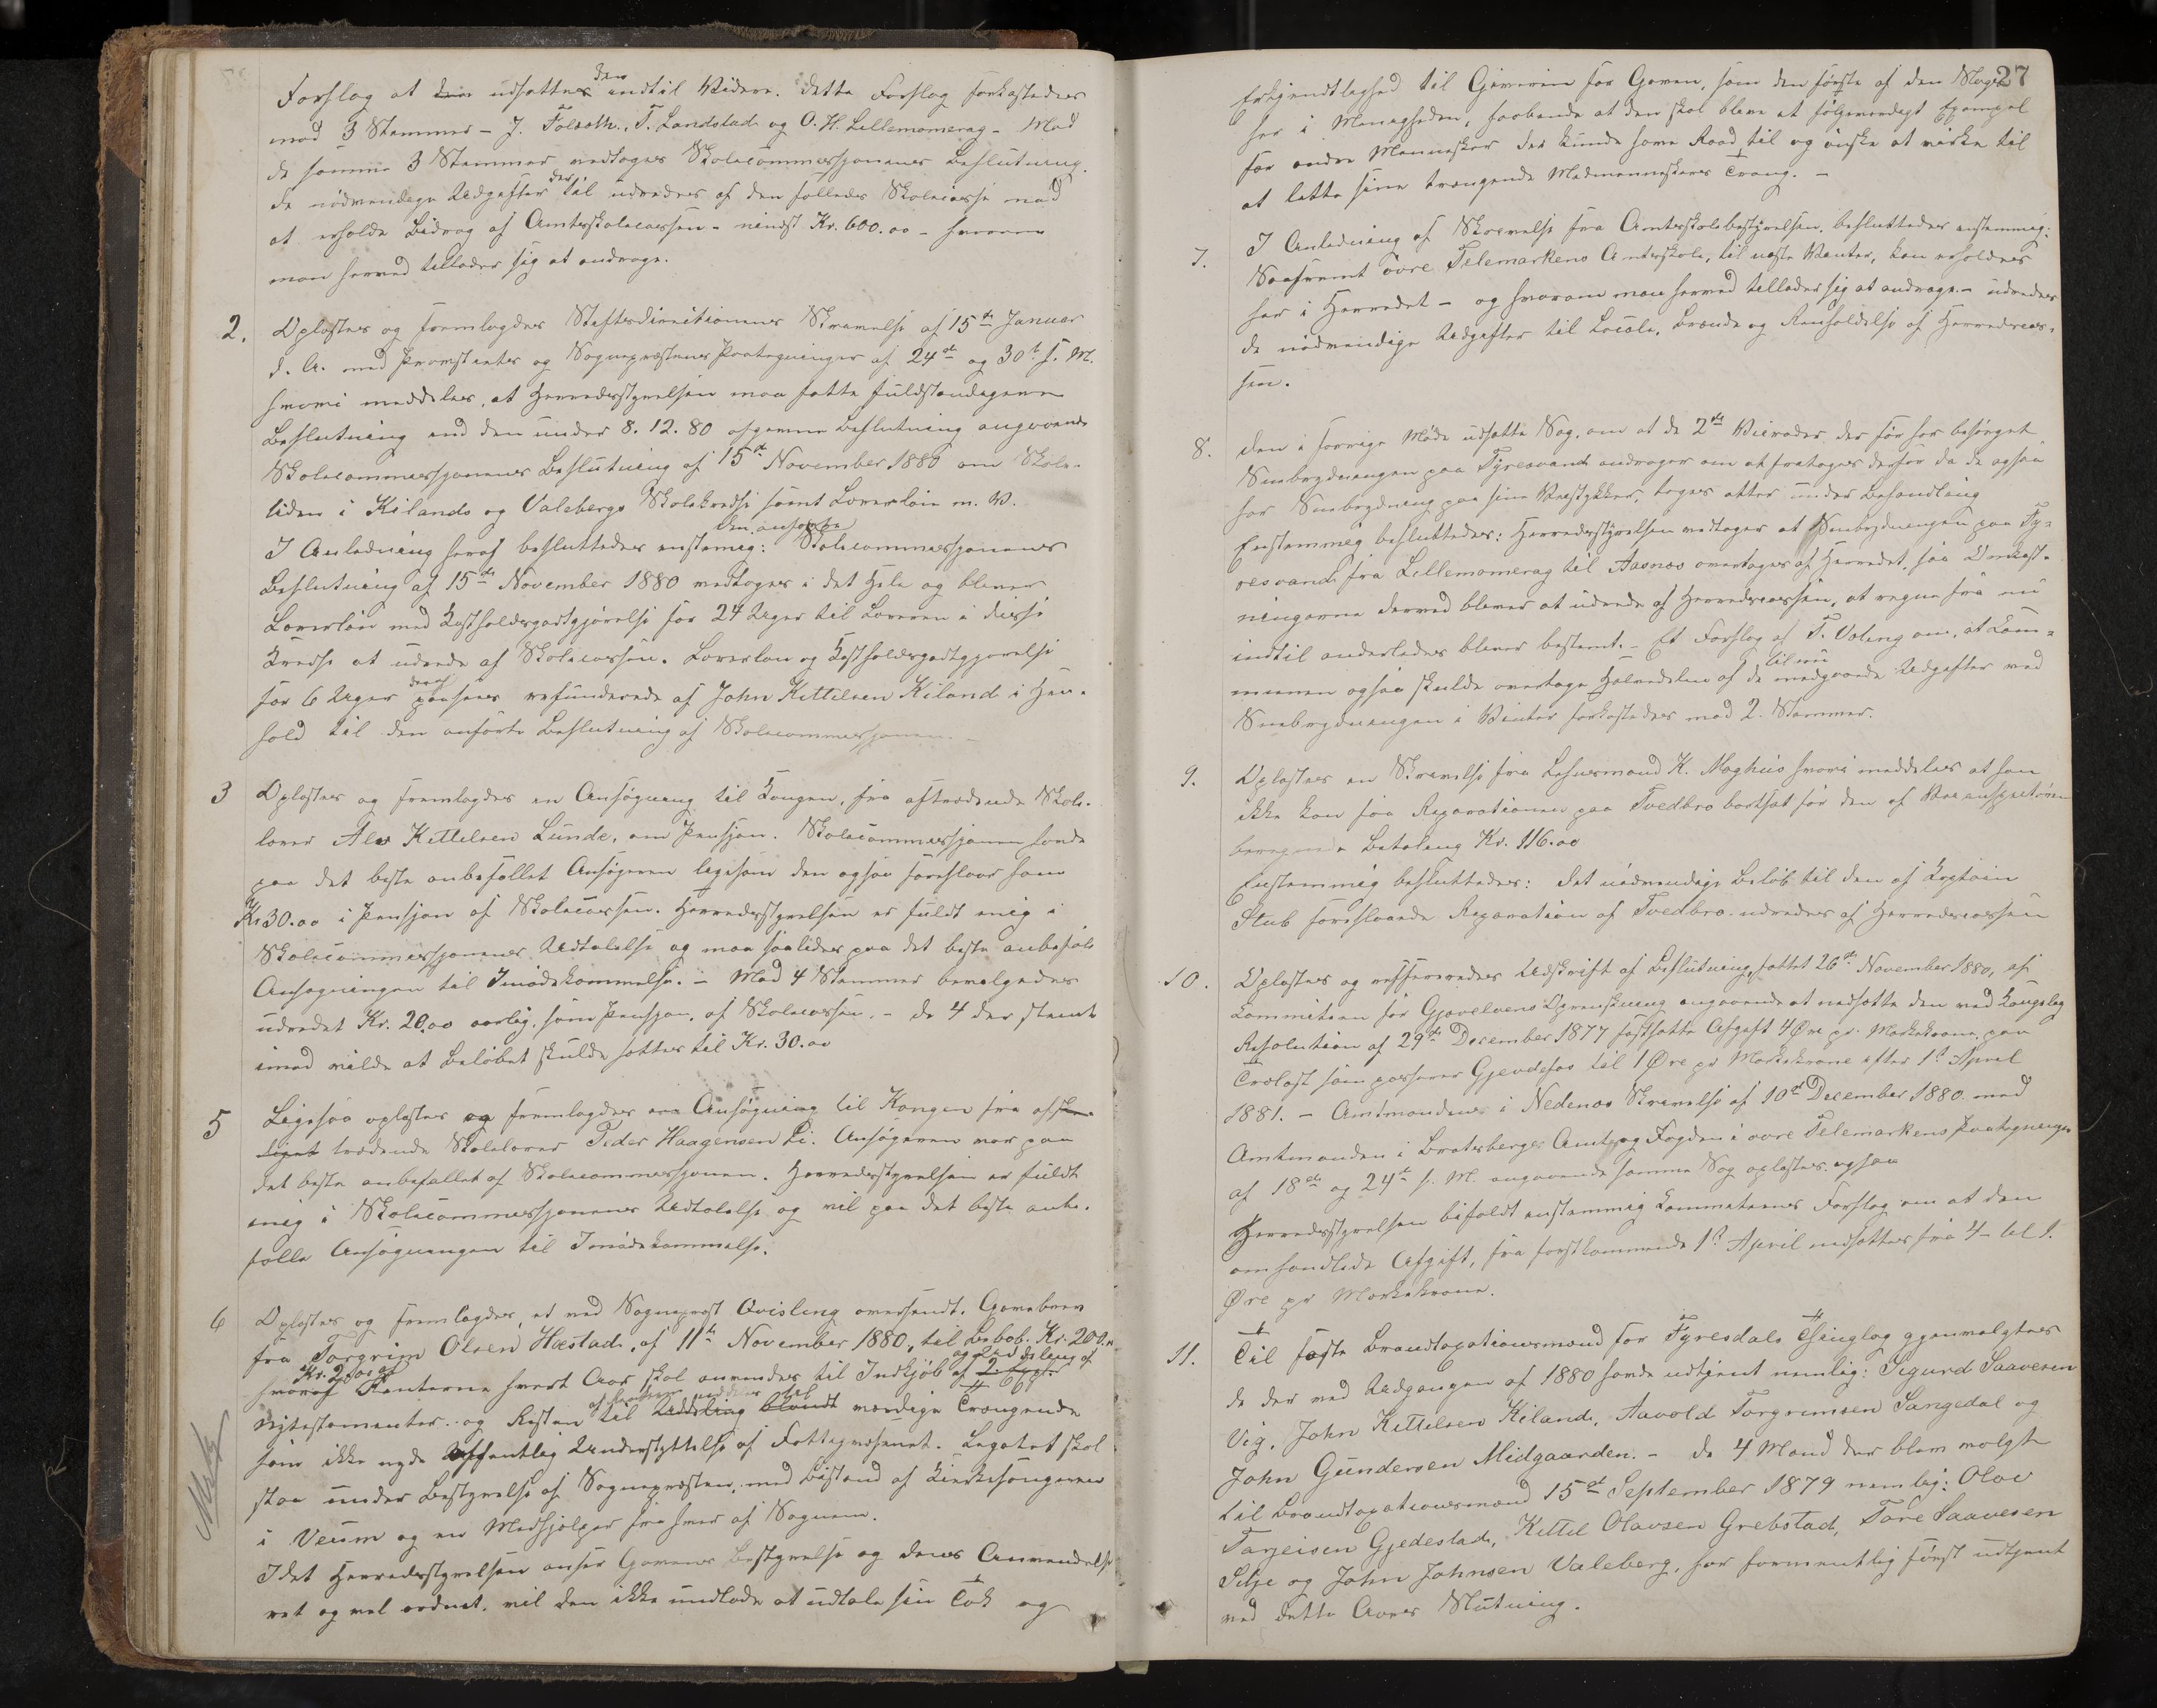 Forslag at den udsættes indtil Videre. Dette Forslag forkastedes
mod 3 Stemmer - J. Folsæth, T. Landstad og O. H. Lillemomerag - Mod
de samme 3 Stemmer vedtoges Skolecommissjonenes Beslutning.
de nödvendige Udgifter der til udredes af den fælleds Skolecasse med
at erholde Bidrag af Amtsskolecassen - mindst Kr. 600.00 - hvorom
man herved tillader sig at andrage.
2. Oplæstes og fremlagdes Stiftsdirectionens Skrivelse af 15de Januar
d. A. med Provstiets og Sognepræstens Paategninger af 24de og 30te s. M.
hvori meddeles, at Herredsstyrelsen maa fatte fuldstændigere
Beslutning end den under 8.12.80 afgivne Beslutning angaaende
Skolecommissjonenes Beslutning af 15de November 1880 om Skole-
tiden i Kilands og Valebergs Skolekredse samt Lærerløn m. V.
I Anledning heraf besluttedes enstemig: Den anførte Skolecommissjonenes
Beslutning af 15de November 1880 vedtoges i det Hele og bliver
Lærerløn med Kostholdsgodtgjörelse for 24 Uger til Læreren i disse
Kredse at udrede af Skolecassen. Lærerløn og Kostholdsgodtgjörelse
for 6 Uger deraf paasees refunderede af John Kittilsen Kiland i Hen-
hold til den anførte Beslutning af Skolecommissjonen.
3 Oplæstes og fremlagdes en Ansögning til Kongen, fra aftrædende Skole-
lærer Alv Kittilsen Lunde, om Pensjon. Skolecommissjonen havde
paa det beste anbefallet Ansögeren ligesom den ogsaa foreslaar ham
Kr 30.00 i Pensjon af Skolecassen. Herredsstyrelsen er fuldt enig i
Skolecommissjonenes Udtalelse og maa saaledes paa det beste anbefale
Ansögningen til Imödekommelse. - Mod 4 Stemmer bevilgedes
udredet Kr. 20.00 aarlig, som Pensjon, af Skolecassen. - De 4 der stemte
imod vilde at Belöbet skulde sættes til Kr. 30.00
5 Ligesaa oplæstes og fremlagdes en Ansögning til Kongen fra af-
trædende Skolelærer Peder Haagensen Li. Ansögeren var paa
det beste anbefallet af Skolecommissjonen. Herredsstyrelsen er fuldt
enig i Skolecommissjonenes Udtalelse og vil paa det beste anbe-
falle Ansögningen til Imödekommelse.
6 Oplæstes og fremlagdes et ved Sogneprest Qvisling oversendt Gavebrev
fra Torgrim Olsen Hæstad, af 11te November 1880, til Beløb Kr. 200.
Kr. 2,00 af og Uddeling af
hvoraf Renterne hvert Aar skal anvendes til Indkjöb af
nytestamenter og Resten af Renterne uddeles til værdige Trængende
som ikke nyde offentlig Understyttelse af Fattigvæsenet. Legatet skal
staa under Bestyrelse af Sognepræsten, med Bistand af Kirkesangeren
i Veum og en Medhjælper fra hver af Sognene.
Idet Herredsstyrelsen anser Gavens Bestyrelse og dens Anvendelse
ret og vel ordnet, vil den ikke undlade at udtale sin Tak og
27
Erkjendtlighed til Giveren for Gaven, som den første af den Slags
her i Menigheden, haabende at den skal blive et fölgeverdigt Exempel
for andre Mennesker der kunde have Raad til og önske at virke til
at lette sine trængende Medmenneskers Trang. -
7. I Anledning af Skrivelse fra Amtsskolebestyrelsen, besluttedes enstemmig:
Saafremt övre Telemarkens Amtsskole, til næste Vinter, kan erholdes
her i Herredet - og hvorom man herved tillader sig at andrage - udredes
de nödvendige Udgifter til Locale, Brænde og Renholdelse af Herredscas-
sen.
8. Den i forrige Möde udsatte Sag, om at de 2de Veiroder der før har besörget
Snebrydningen paa Fyresvand andrager om at fratages derfor da de ogsaa
har Snebrydning paa sine Veistykker, toges atter under Behandling
Enstemmig besluttedes: Herredsstyrelsen vedtager at Snebrydningen paa Fy-
resvand fra Lillemomerag til Aasnes overtages af Herredet, saa Omkost-
ningerne derved bliver at udrede af Herredscassen, at regne fra nu
indtil anderledes bliver bestemt. - Et Forslag af T. Veling om, at Com-
munen ogsaa skulde overtage Halvdelen af de til nu medgaaede Udgifter ved
Snebrydningen i Vinter forkastedes mod 2 Stemmer.
9. Oplæstes en Skrivelse fra Lehnsmand K. Moghus hvori meddeles at han
ikke kan faa Reparationen paa Tvedbro bortsat for den af Veiinspectören
beregnede Betaling Kr. 116.00
Enstemmig besluttedes: Det nödvendige Belöb til den af Captain
Stub foreslaaede Reparation af Tvedbro udredes af Herredscassen
10. Oplæstes og refereredes Udskrift af Beslutning, fattet 26de November 1880, af
Committeen for Gjøvelvens Oprenskning angaaende at nedsætte den ved Kongelig
Resolution af 29de December 1877 fastsatte Afgift 4 Øre pr. Markekrone paa
Trælast som passerer Gjevdefos til 1 Øre pr Markekrone efter 1ste April
1881. - Amtmandens i Nedenæs Skrivelse af 10de December 1880 med
Amtmanden i Bratsbergs Amts og Fogden i övre Telemarkens Paategninger
af 18de og 24de s. M. angaaende samme Sag oplæstes ogsaa
Herredsstyrelsen bifaldt enstemmig Committeens Forslag om at den
omhandlede Afgift, fra førstkommende 1ste April nedsættes fra 4 - til 1.
Øre pr Markekrone.
11. Til faste Brandtaxationsmænd for Fyresdals Thinglag gjenvalgtes
de der ved Udgangen af 1880 havde udtjent nemlig: Sigurd Saavesen
Vig, John Kittilsen Kiland, Aavold Torgrimsen Sangedal og
John Gundersen Midgaarden. - De 4 Mænd der blev valgte
til Brandtaxationsmænd 15de September 1879 nemlig: Olav
Tarjeisen Gjedestad, Kittil Olavsen Grebstad, Tore Saavesen
Silje og John Johnsen Valeberg, har formentlig først udtjent
ved dette Aars Slutning.